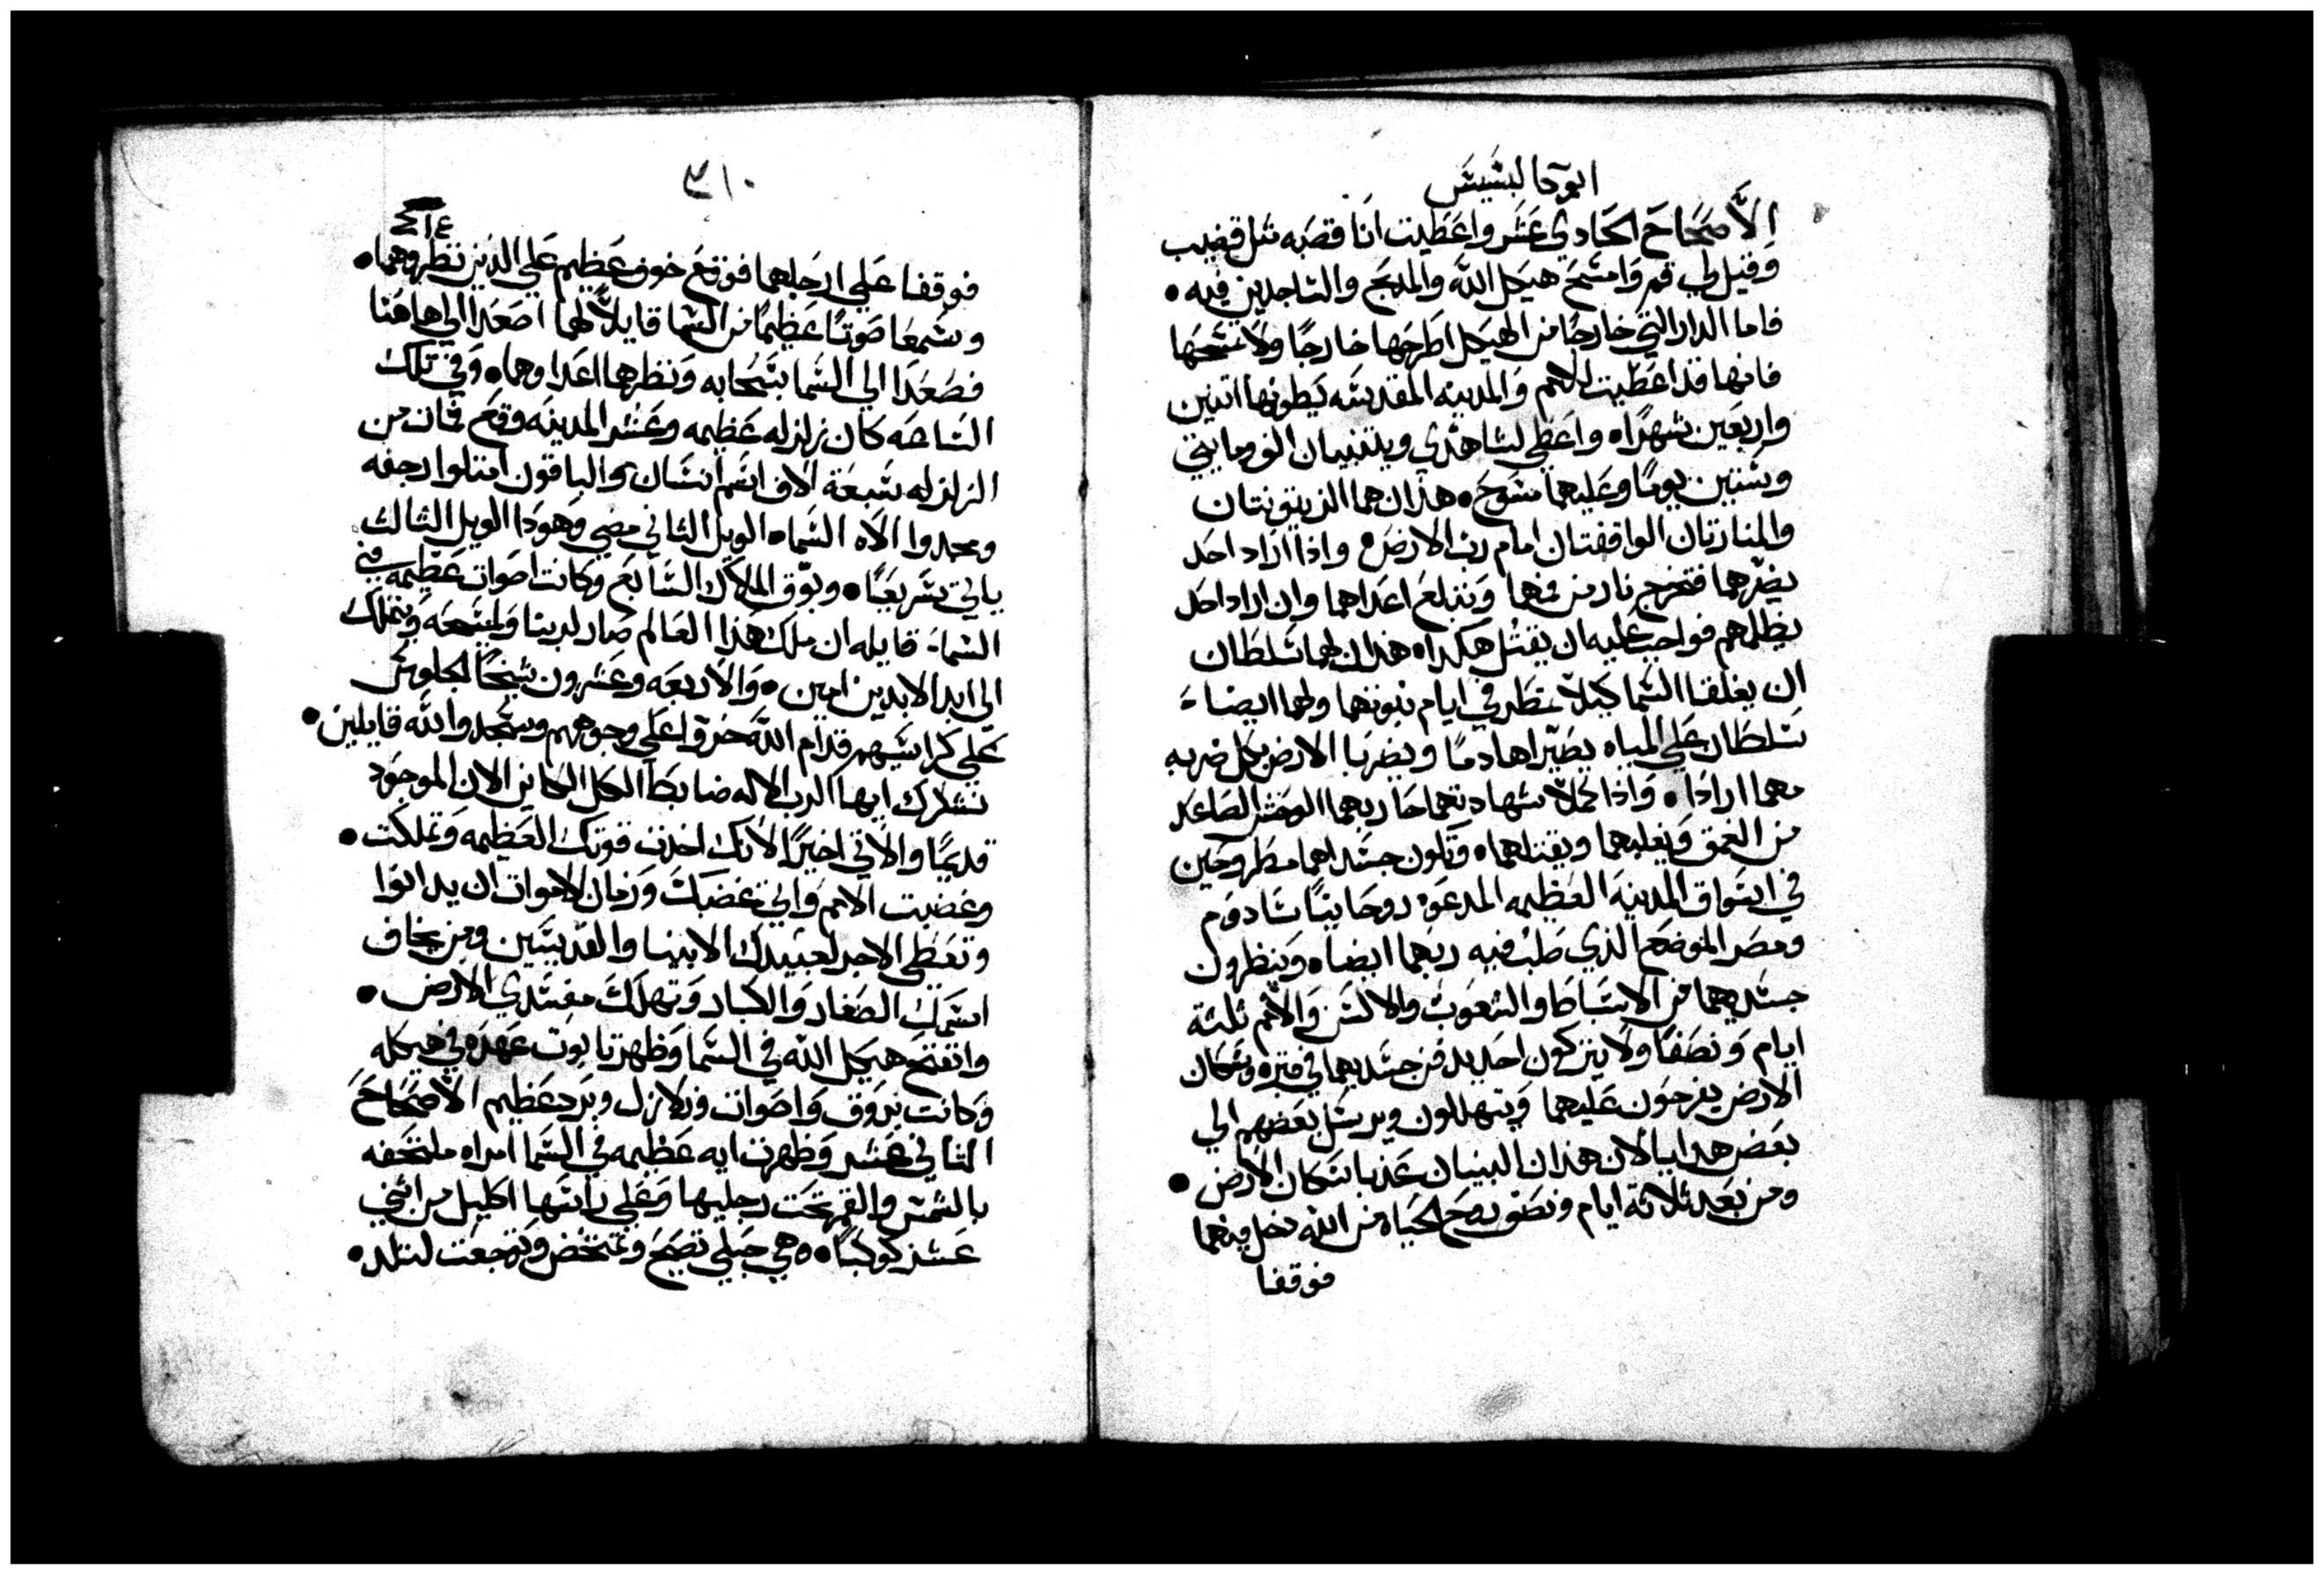 ابوكالبسيس
الاصحاح الحادي عشر واعطيت انا قصبه مثل قضيب
وقيل لي قم وامسح هيكل الله والمذبح والساجدين فيه •
فاما الدار التي خارجًا من الهيكل اطرحها خارجًا ولا تمسحها
فانها قد اعطيت للامم والمدينه المقدسه يطونها اتنين
واربعين شهرًا ه واعطي لشاهدي ويتنبيان الف ومايتي
وستين يومًا وعليهما مسوح • هذان هما الزيتونتان
والمنارتان الواقفتان امام رب الارض ه واذا اراد احد
يضرهما فتخرج نار من فمهما وتبلع اعداهما وان اراد احد
يظلمهم فواجب عليه ان يقتل هكدا ه هذان لهما سلطان
ان يغلقا السما كيلا تمطر في ايام نبوتهما ولهما ايضا
سلطان علي المياه يصيراها دمًا ويضربا الارض بكل ضربه
مهما ارادا • واذا كملا شهادتهما حاربهما الوحش الصاعد
من العمق ويغلبهما ويقتلهما ه وتكون جسداهما مطروحين
في اسواق المدينه العظيمه المدعوه روحانيًا سادوم
ومصر الموضع الذي صلب فيه ربهما ايضا ه وينظرون
جسديهما من الاسباط والشعوب والالسن والامم ثلثة
ايام ونصفًا ولا يتركون احد يدفن جسديهما في قبر ه وسكان
الارض يفرحون عليهما ويتهللون ويرسل بعضهم الي
بعض هدايا لان هذان النبيان عذبا سكان الارض •
ومن بعد ثلاثة ايام ونصف روح الحياه من الله دخل فيهما
فوقفا
٣١٠
٤١٤
فوقفا علي ارجلهما فوقع خوف عظيم علي الذين نظروهما •
وسمعا صوتًا عظيمًا من السما قايلًا لهما اصعدا الي هاهنا
فصعدا الي السما بسحابه ونظرهما اعداوهما • وفي تلك
الساعه كان زلزله عظيمه وعشر المدينه وقع فمات من
الزلزله سبعة الاف اسم انسان والباقون امتلوا رجفه
ومجدوا الاه السما ه الويل الثاني مضي وهودا الويل الثالث
ياتي سريعًا • وبوق الملاك السابع وكانت اصوات عظيمه في
السما قايله ان ملك هذا العالم صار لربنا ولمسيحه ويملك
الي ابد الابدين امين • والاربعه وعشرون شيخًا الجلوس
علي كراسيهم قدام الله خروا علي وجوههم وسجدوا لله قايلين •
نشكرك ايها الرب الاله ضابط الكل الكاين الان الموجود
قديمًا والاتي اخيرًا لانك اخذت قوتك العظيمه وتملكت •
وغضبت الامم واتي غضبك وزمان الاموات ان يدانوا
وتعطي الاجر لعبيدك الانبيا والقديسين ومن يخاف
اسمك الصغار والكبار وتهلك مفسدي الارض •
وانفتح هيكل الله في السما وظهر تابوت عهده في هيكله
وكانت بروق واصوات وزلازل وبرد عظيم الاصحاح
الثاني عشر وظهرت ايه عظيمه في السما امراه ملتحفه
بالشمس والقمر تحت رجليها وعلي راسها اكليل من اثني
عشر كوكبًا • وهي حبلي تصيح وتمخض وتوجعت لتلد •